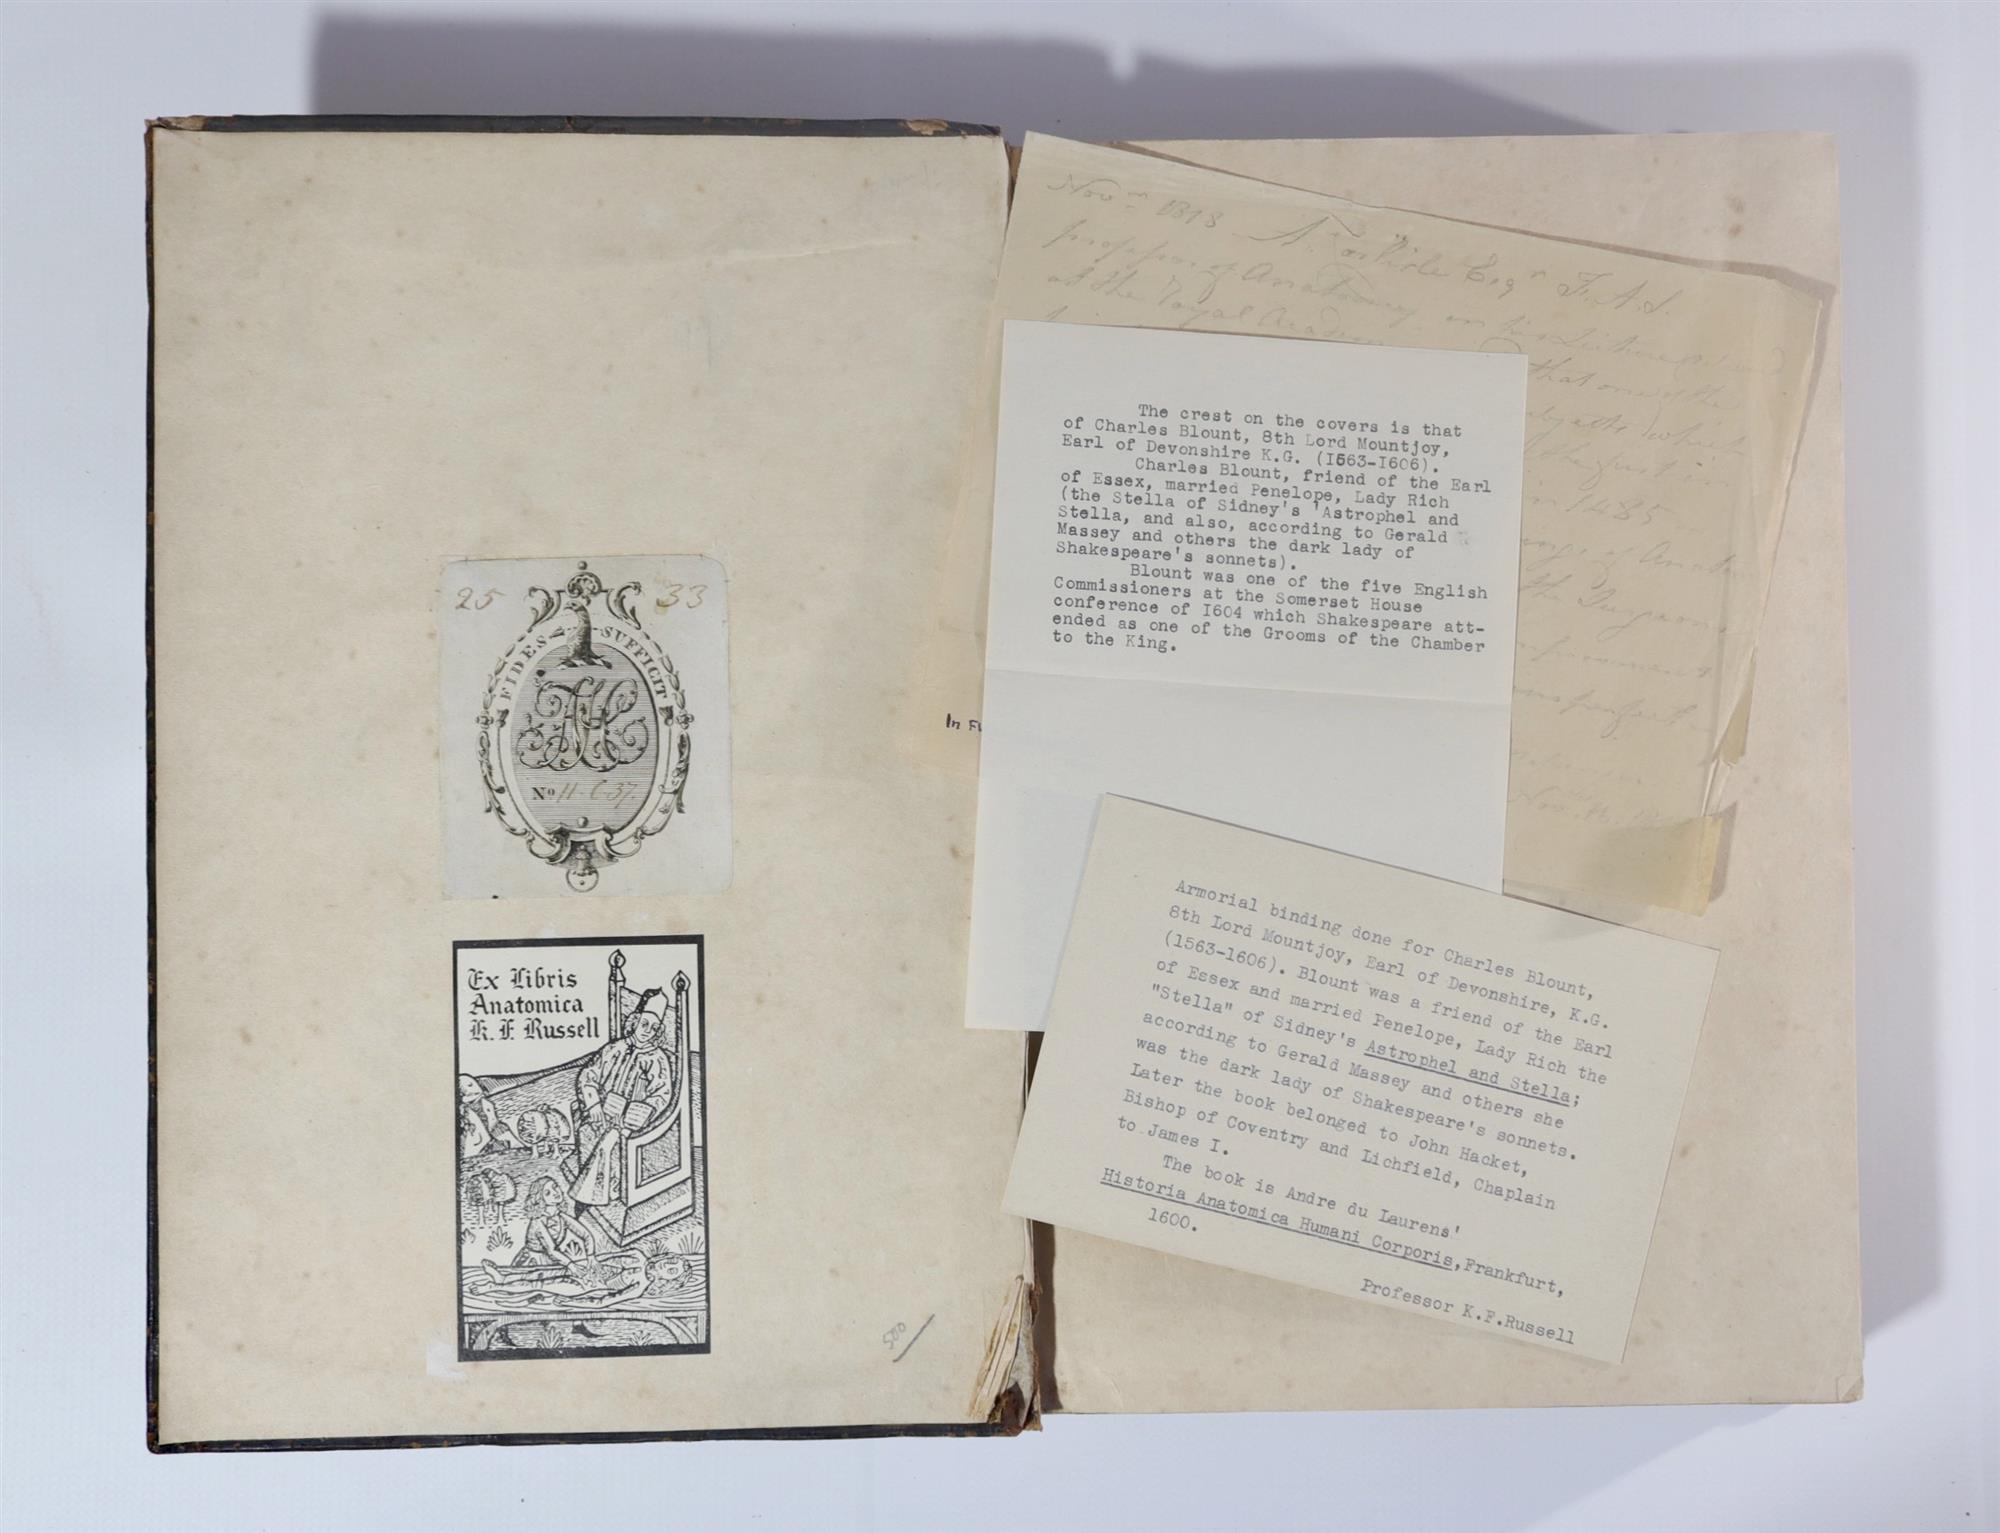 25 33
FIDES SUFFICIT
No H-C-37.
Ex Libris
Anatomica
K. F. Russell
500
In Fl
Novr 1818 A. Carlisle Esqr F.A.S.
professor of Anatomy in his Lecture
at the Royal Academ
that one of the
of the first in
in 1485
of Anat
the Surgeons
Nov.
The crest on the covers is that
of Charles Blount, 8th Lord Mountjoy,
Earl of Devonshire K.G. (I563-I606).
Charles Blount, friend of the Earl
of Essex, married Penelope, Lady Rich
(the Stella of Sidney's 'Astrophel and
Stella, and also, according to Gerald
Massey and others the dark lady of
Shakespeare's sonnets).
Blount was one of the five English
Commissioners at the Somerset House
conference of I604 which Shakespeare att-
ended as one of the Grooms of the Chamber
to the King.
Armorial binding done for Charles Blount,
8th Lord Mountjoy, Earl of Devonshire, K.G.
(1563-1606). Blount was a friend of the Earl
of Essex and married Penelope, Lady Rich the
"Stella" of Sidney's Astrophel and Stella;
according to Gerald Massey and others she
was the dark lady of Shakespeare's sonnets.
Later the book belonged to John Hacket,
Bishop of Coventry and Lichfield, Chaplain
to James I.
The book is Andre du Laurens'
Historia Anatomica Humani Corporis, Frankfurt,
1600.
Professor K.F.Russell